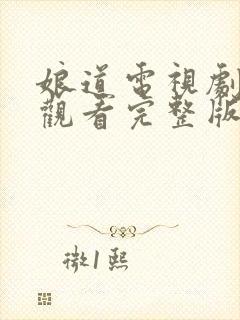 娘道電視劇
觀看完整版
微1熙